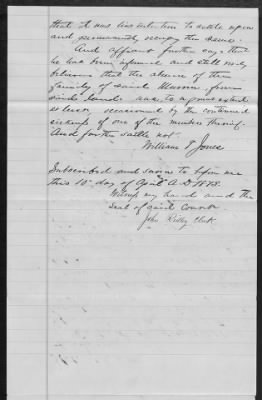 that it was his intention to settle upon
and permanently occupy the same.
And affiant further says that
he has been informed and still verily
believes that the absence of the
family of said Munson from
said lands was to a great extent
at least occasioned by the continued
sickness of one of the members thereof.
And further saith not.
William T Jones
Subscribed and sworn to before me
this 10 day of April A.D. 1878.
Witness my hand and the
Seal of said Court
John Kelly Clerk